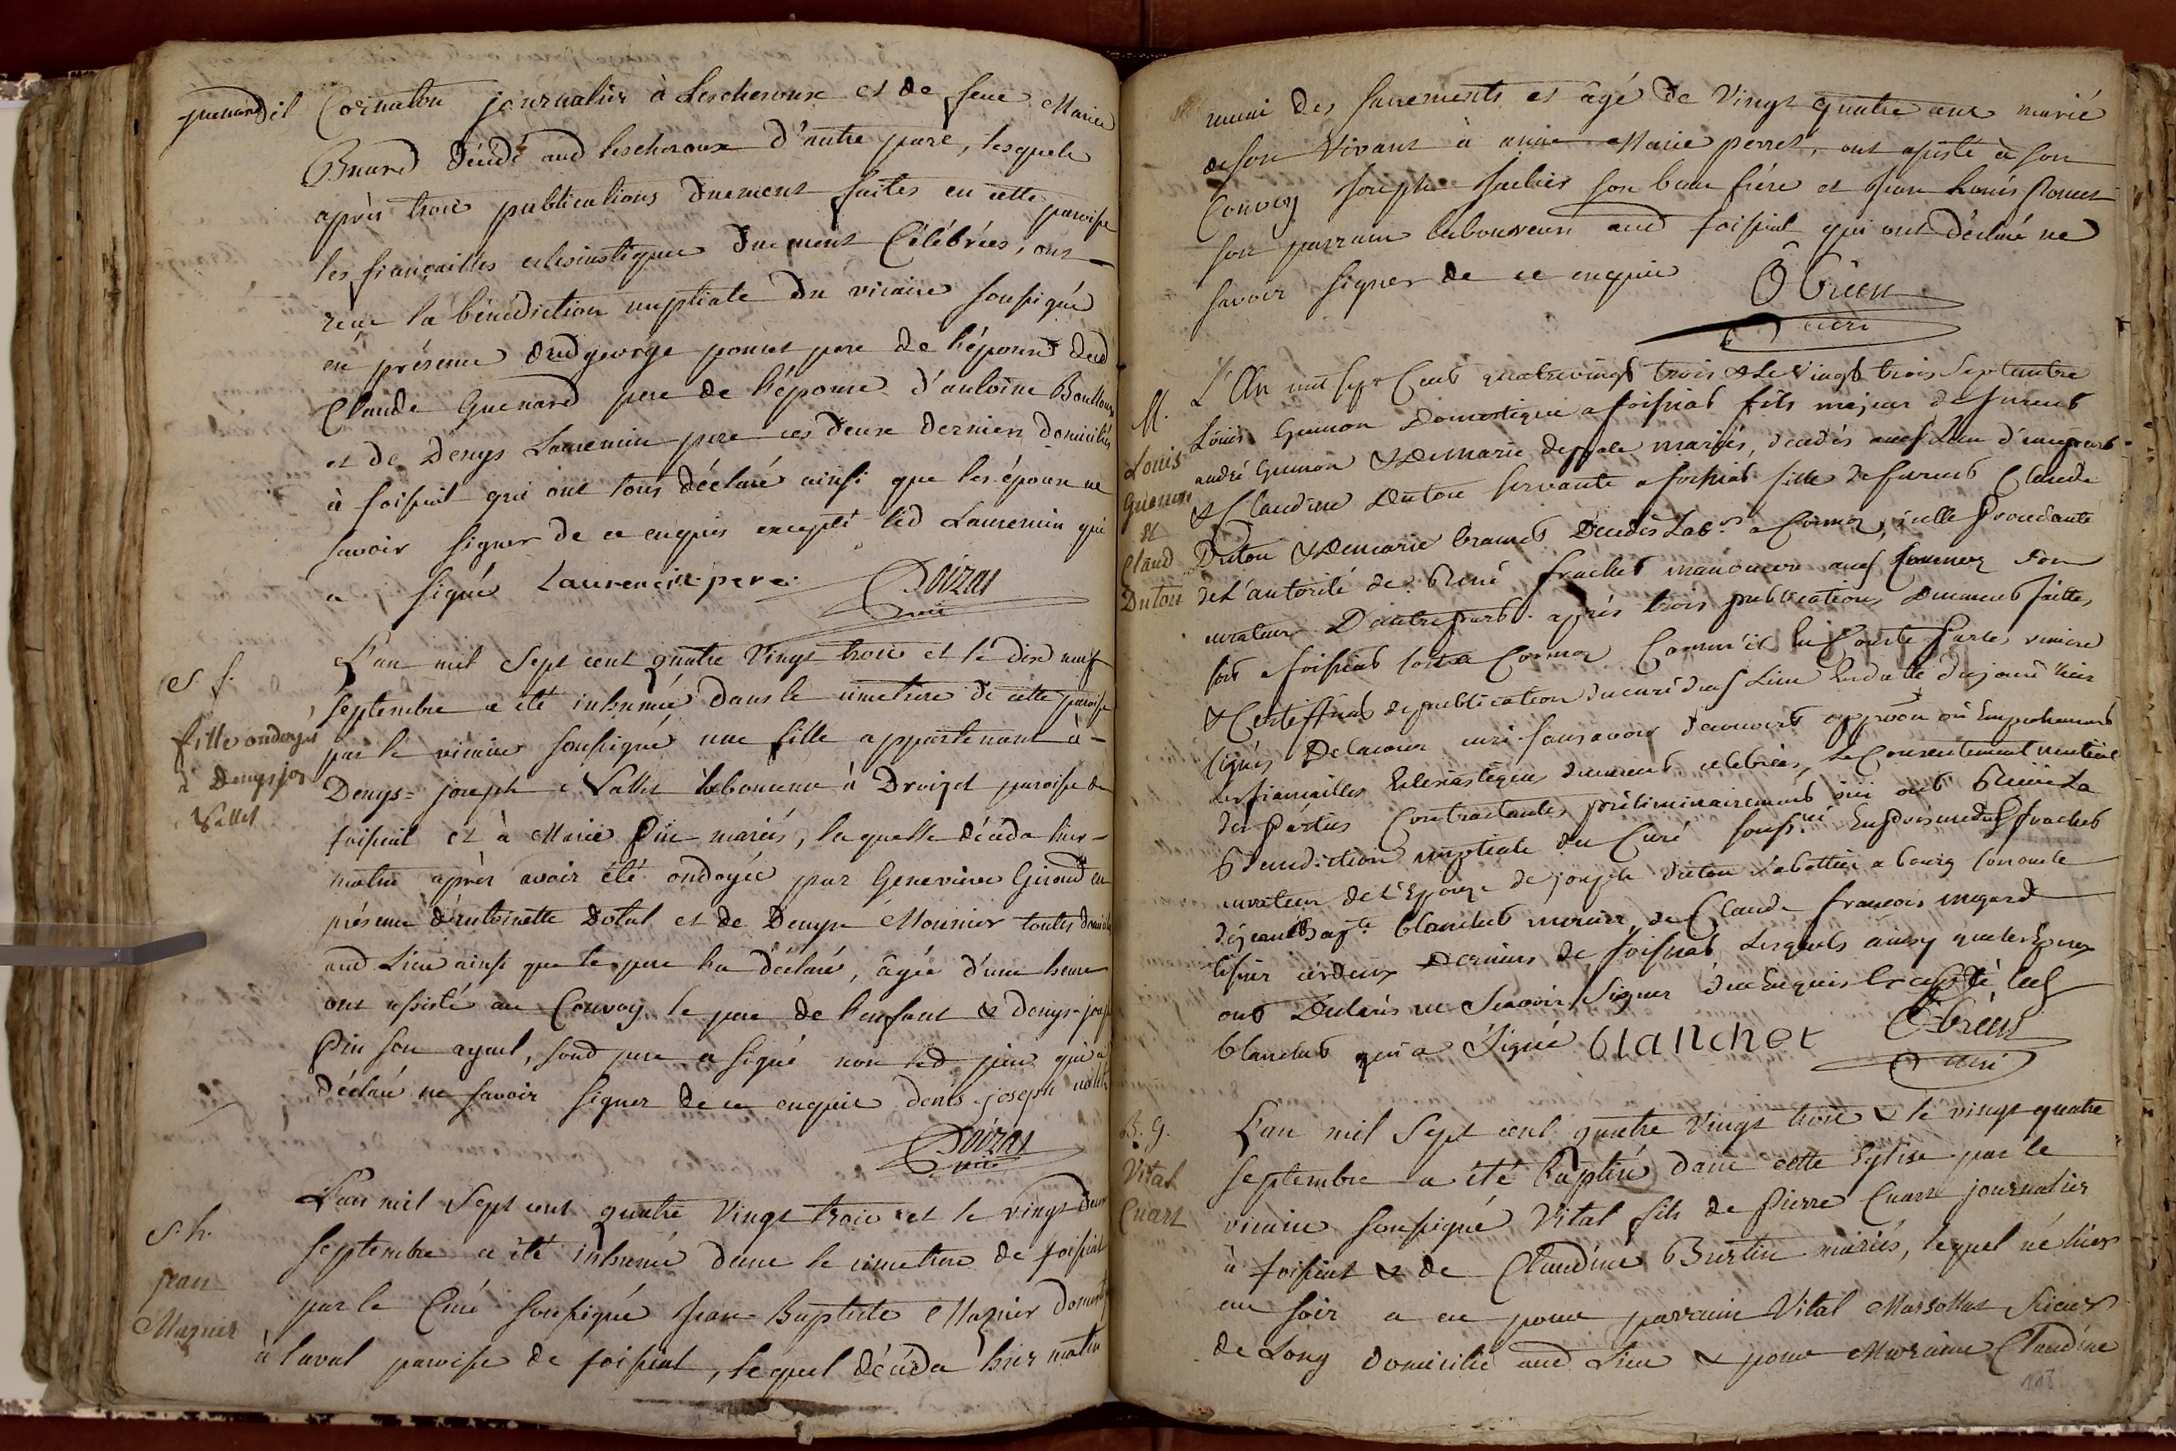 guenard dit Cormaton journalier à Lescheroux et de feue Marie
Buard décédé aud Lescheroux d'autre part, lesquels
après trois publications duement faites en cette paroisse
les fiançailles eclesiastiques duement Célébrées, ont
recu la bénédiction nuptiale du vicaire soussigné
en présence dud george ponset pere de l'époux dud
Claude Guenard pere de l'épouse d'antoine
et de Denys Laurencin pere ces deux derniers domiciliés
à foissiat qui ont tous déclaré ainsi que les époux ne
savoir signer de ce enquis excepté led Laurencin qui
a signé Laurencin pere Poizat
vic
S f.
fille ondoyée
à Denys jos
Vallet
L'an mil Sept cent quatre Vingt trois et le dix neuf
Septembre a été inhumée dans le cimetiere de cette paroisse
par le vicaire soussigné une fille appartenant à
Denys-joseph Vallet laboureur à Droizet paroisse de
foissiat et à Marie Pin mariés, laquelle décéda hier
matin après avoir été ondoyée par Geneviève Giraud en
présence d'antoinette Dotal et de Denyse Monnier toutes
aud Lieu ainsi que le pere l'a déclaré, âgée d'une heure
ont assisté au Convoy le pere de l'enfant & denys-josep
Pin son ayeul, led pere a signé non led pin qui a
déclaré ne savoir signer de ce enquis denis joseph vallet
Poizat
vic
S.h.
jean
Magnier
L'an mil Sept cent quatre Vingt trois et le vingt deux
Septembre a été inhumé dans le cimetiere de foissiat
par le Curé soussigné Jean-Baptiste Magnier domest
à laval paroisse de foissiat, lequel décéda hier matin
muni des sacrements et âgé de Vingt quatre ans marié
de son Vivant à anne Marie perret, ont assisté à son
Convoy Joseph son beau frère et Jean Louis Ponset
son parrain laboureurs aud foissiat qui ont déclaré ne
savoir signer de ce enquis O Brien
curé
M.
Louis
Guenon
&
Claud
Duton
L'An mil sept Cent quatrevingt trois & Le Vingt trois Septembre
Louis Guenon Domestique a foissiat fils majeur de furent
andré Guenon & De Marie mariés, décédés aud Lieu
& Claudine Duton servante a foissiat fille de furent Claude
Duton & De marie décédés Lab.rs a Cormoz, icelle procédante
de L'autorité de René frachet manouvrier aud Cormoz son
curateur D'autre part. après trois publications Duement faittes
soit a foissiat soit a Cormoz Comm'il
& Certifficat de publication du curé dud Lieu En datte du jour d'hier
signé Delacour curé sans avoir decouvert opposon ou Empechement
les fiancailles Eclesiastiques duement célébrées, Le Consentement mutuel
des Parties Contractantes préliminairement oui ont Recu La
Bénédiction nuptiale du Curé sousss.né En presence dud frachet
curateur de L'Epouze de joseph Duton Sabottier a bourg
de jean Bap.te blanchet menuier, de Claude francois megard
tissier ces deux derniers de foissiat Lesquels ainsy que les Epoux
ont Déclarés ne Scavoir Signer de ce Enquis Excepté led
blanchet qui a Signé blanchet O Brien
curé
B. g.
Vital
Cuart
L'an mil Sept cent quatre Vingt trois & le vingt quatre
Septembre a été baptisé dans cette Eglise par le
vicaire soussigné Vital fils de Pierre Cuart journalier
à foissiat & de Claudine Burtin mariés, lequel né hier
au soir a eu pour parrain Vital Scieur
de Long domicilié aud Lieu & pour Marraine Claudine